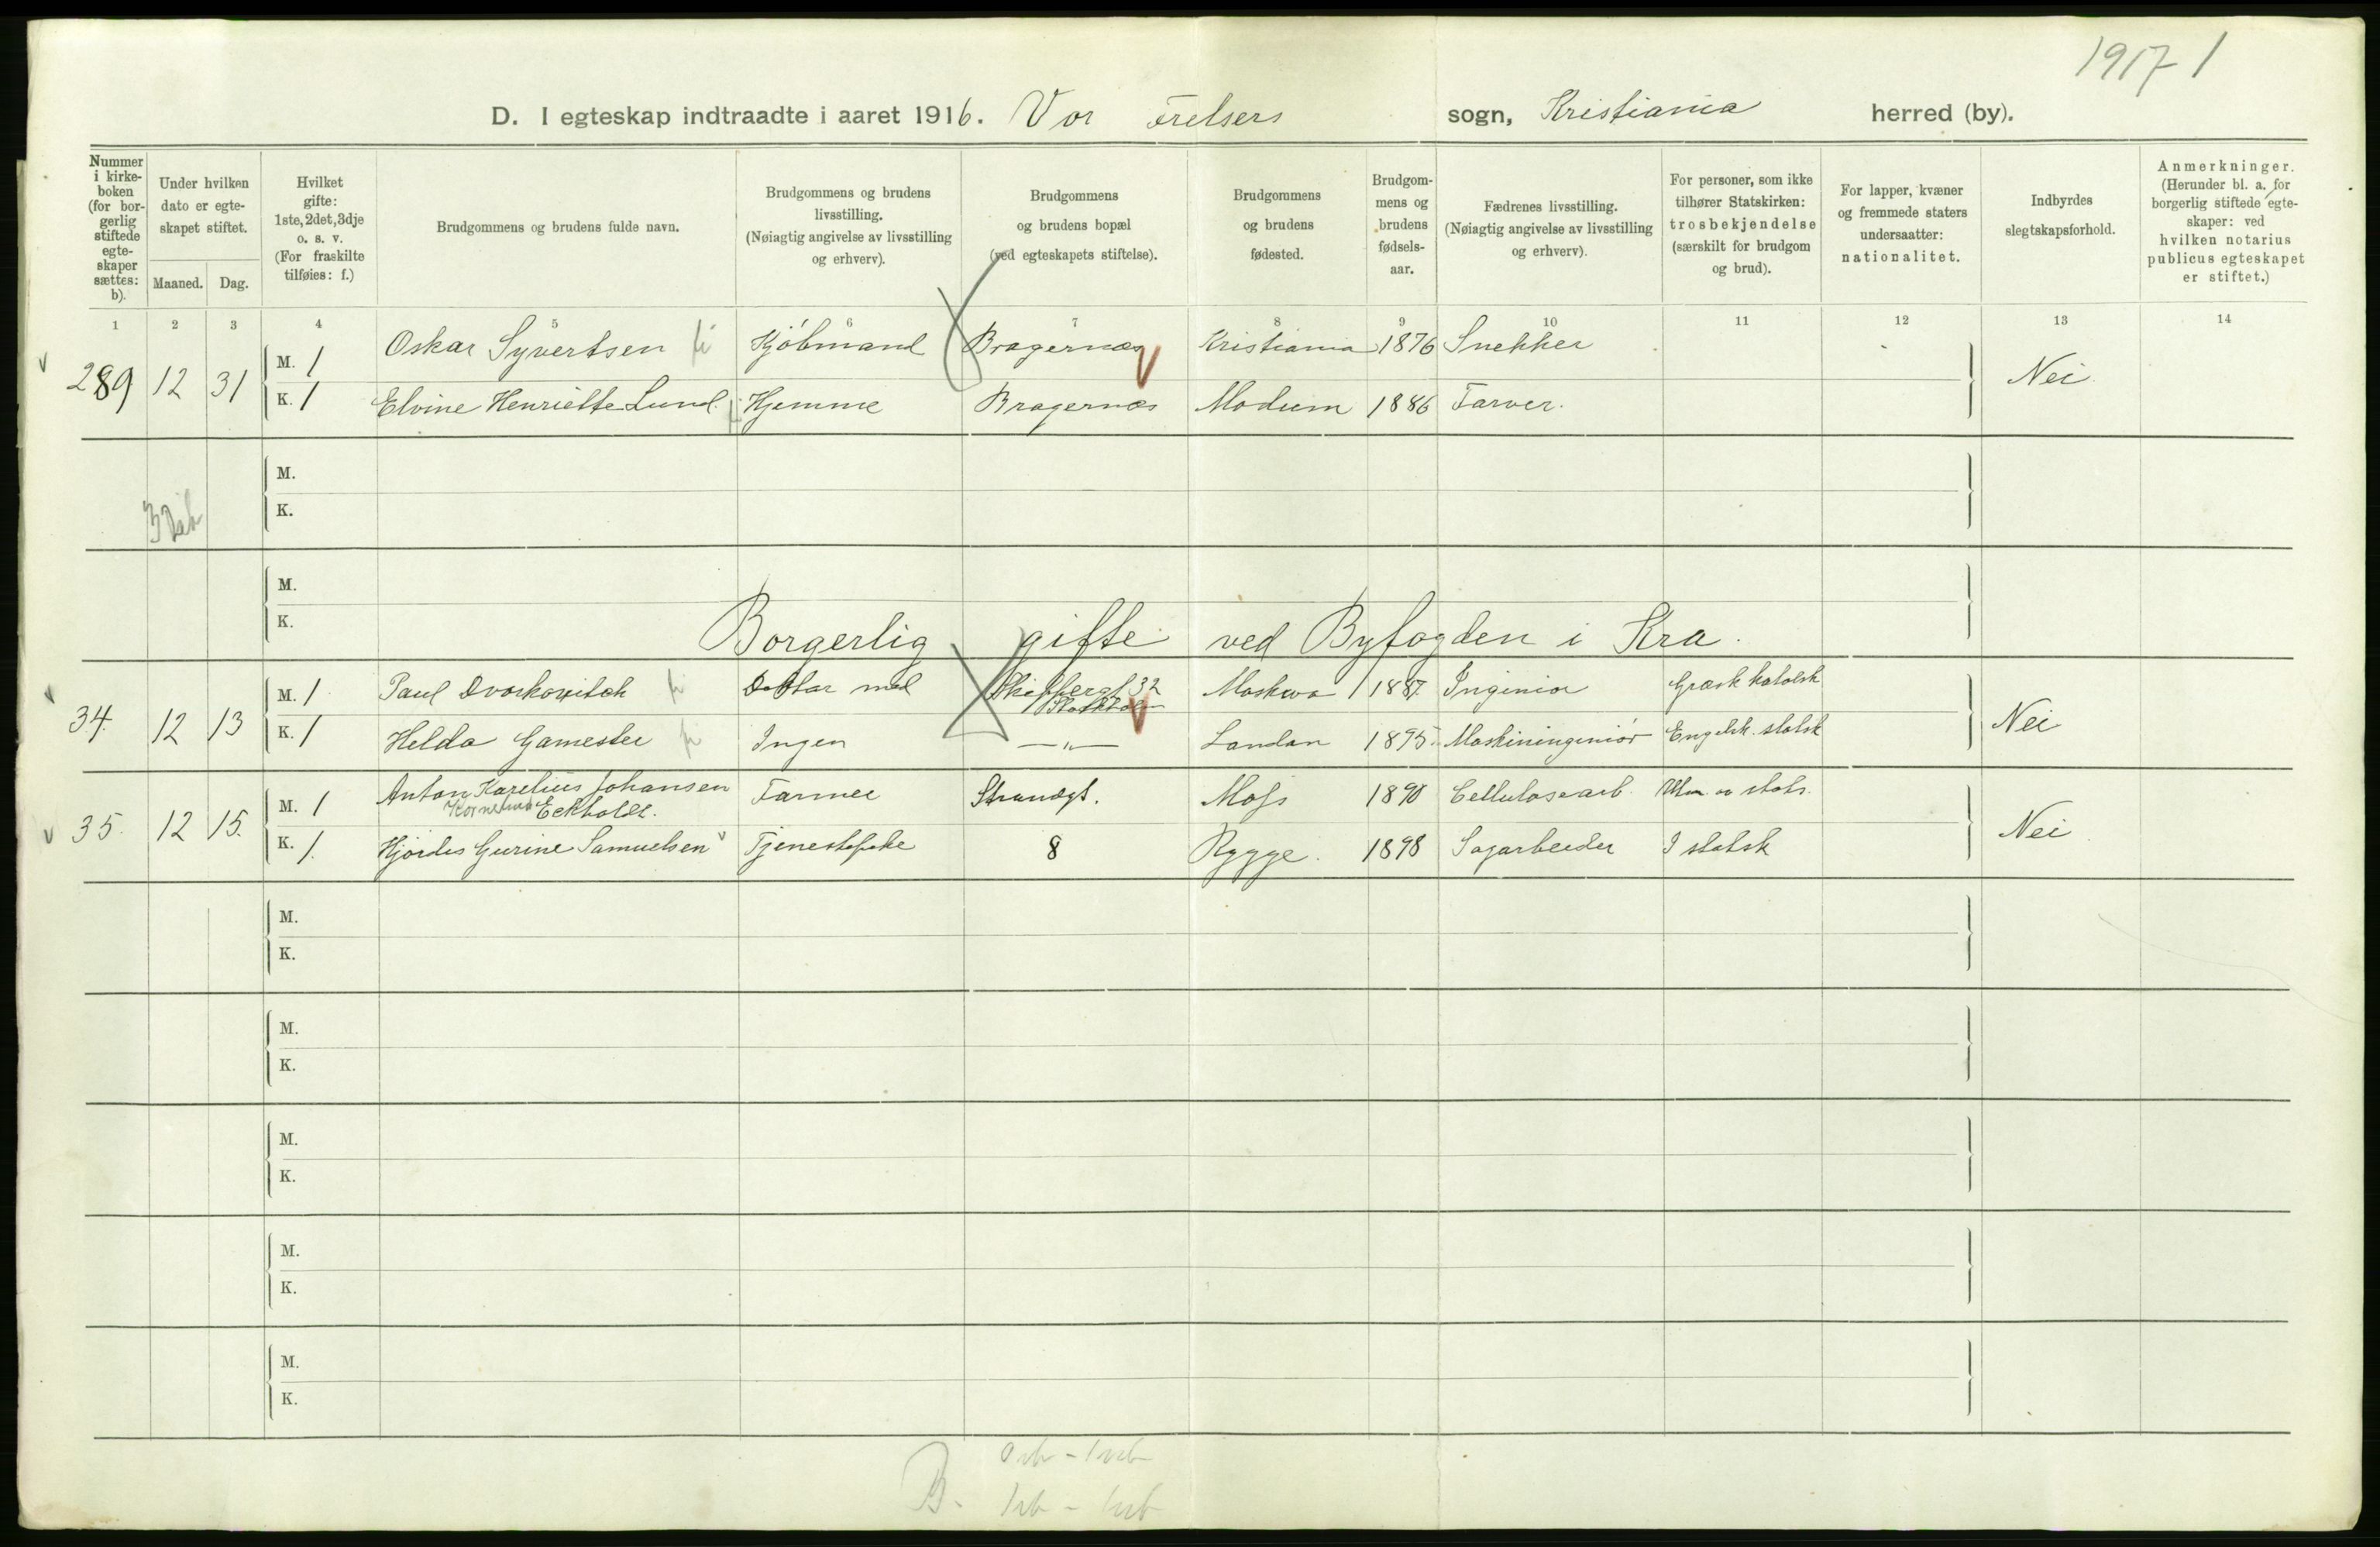 1917 1
D. I egteskap indtraadte i aaret 1916. Vor Frelsers sogn, Kristiania herred (by).
Nummer i kirkeboken (for borgerlig stiftede egteskaper sættes: b).
Under hvilken dato er egteskapet stiftet.
Maaned. Dag.
Hvilket gifte: 1ste, 2det, 3dje o. s. v. (For fraskilte tilføies: f.)
Brudgommens og brudens fulde navn.
Brudgommens og brudens livsstilling. (Nøiagtig angivelse av livsstilling og erhverv).
Brudgommens og brudens bopæl (ved egteskapets stiftelse).
Brudgommens og brudens fødested.
Brudgommens og brudens fødselsaar.
Fædrenes livsstilling. (Nøiagtig angivelse av livsstilling og erhverv).
For personer, som ikke tilhører Statskirken: trosbekjendelse (særskilt for brudgom og brud).
For lapper, kvæner og fremmede staters undersaatter: nationalitet.
Indbyrdes slegtskapsforhold.
Anmerkninger. (Herunder bl. a. for borgerlig stiftede egteskaper: ved hvilken notarius publicus egteskapet er stiftet.)
1 2 3 4 5 6 7 8 9 10 11 12 13 14
289 12 31 M. 1 Oskar Syvertsen Kjöbmand Bragernæs Kristiania 1876 Snekker Nei
K. 1 Elvine Henriette Lund. Hjemme Bragernæs Modum 1886 Farver.
M.
K.
M.
K.
Borgerlig gifte ved Byfogden i Kra.
34. 12 13 M. 1 Paul Dvoskovitch Doktor med 32 Moskwa 1887. Ingeniør Græsk katolsk Nei
K. 1 Helda Gamester Ingen —"— London 1895 Maskiningeniör Engelsk statsk
35. 12 15. M. 1 Anton Karelius Johansen Farmer Strandgt. Moss 1890 Cellulosearb. Utm. av stats. Nei
Kornelius Eckholdt.
K. 1. Hjördis Gurine Samuelsen Tjenestepike 8 Rygge. 1898 Sagarbeider I statsk
M.
K.
M.
K.
M.
K.
M.
K.
M.
K.
B.